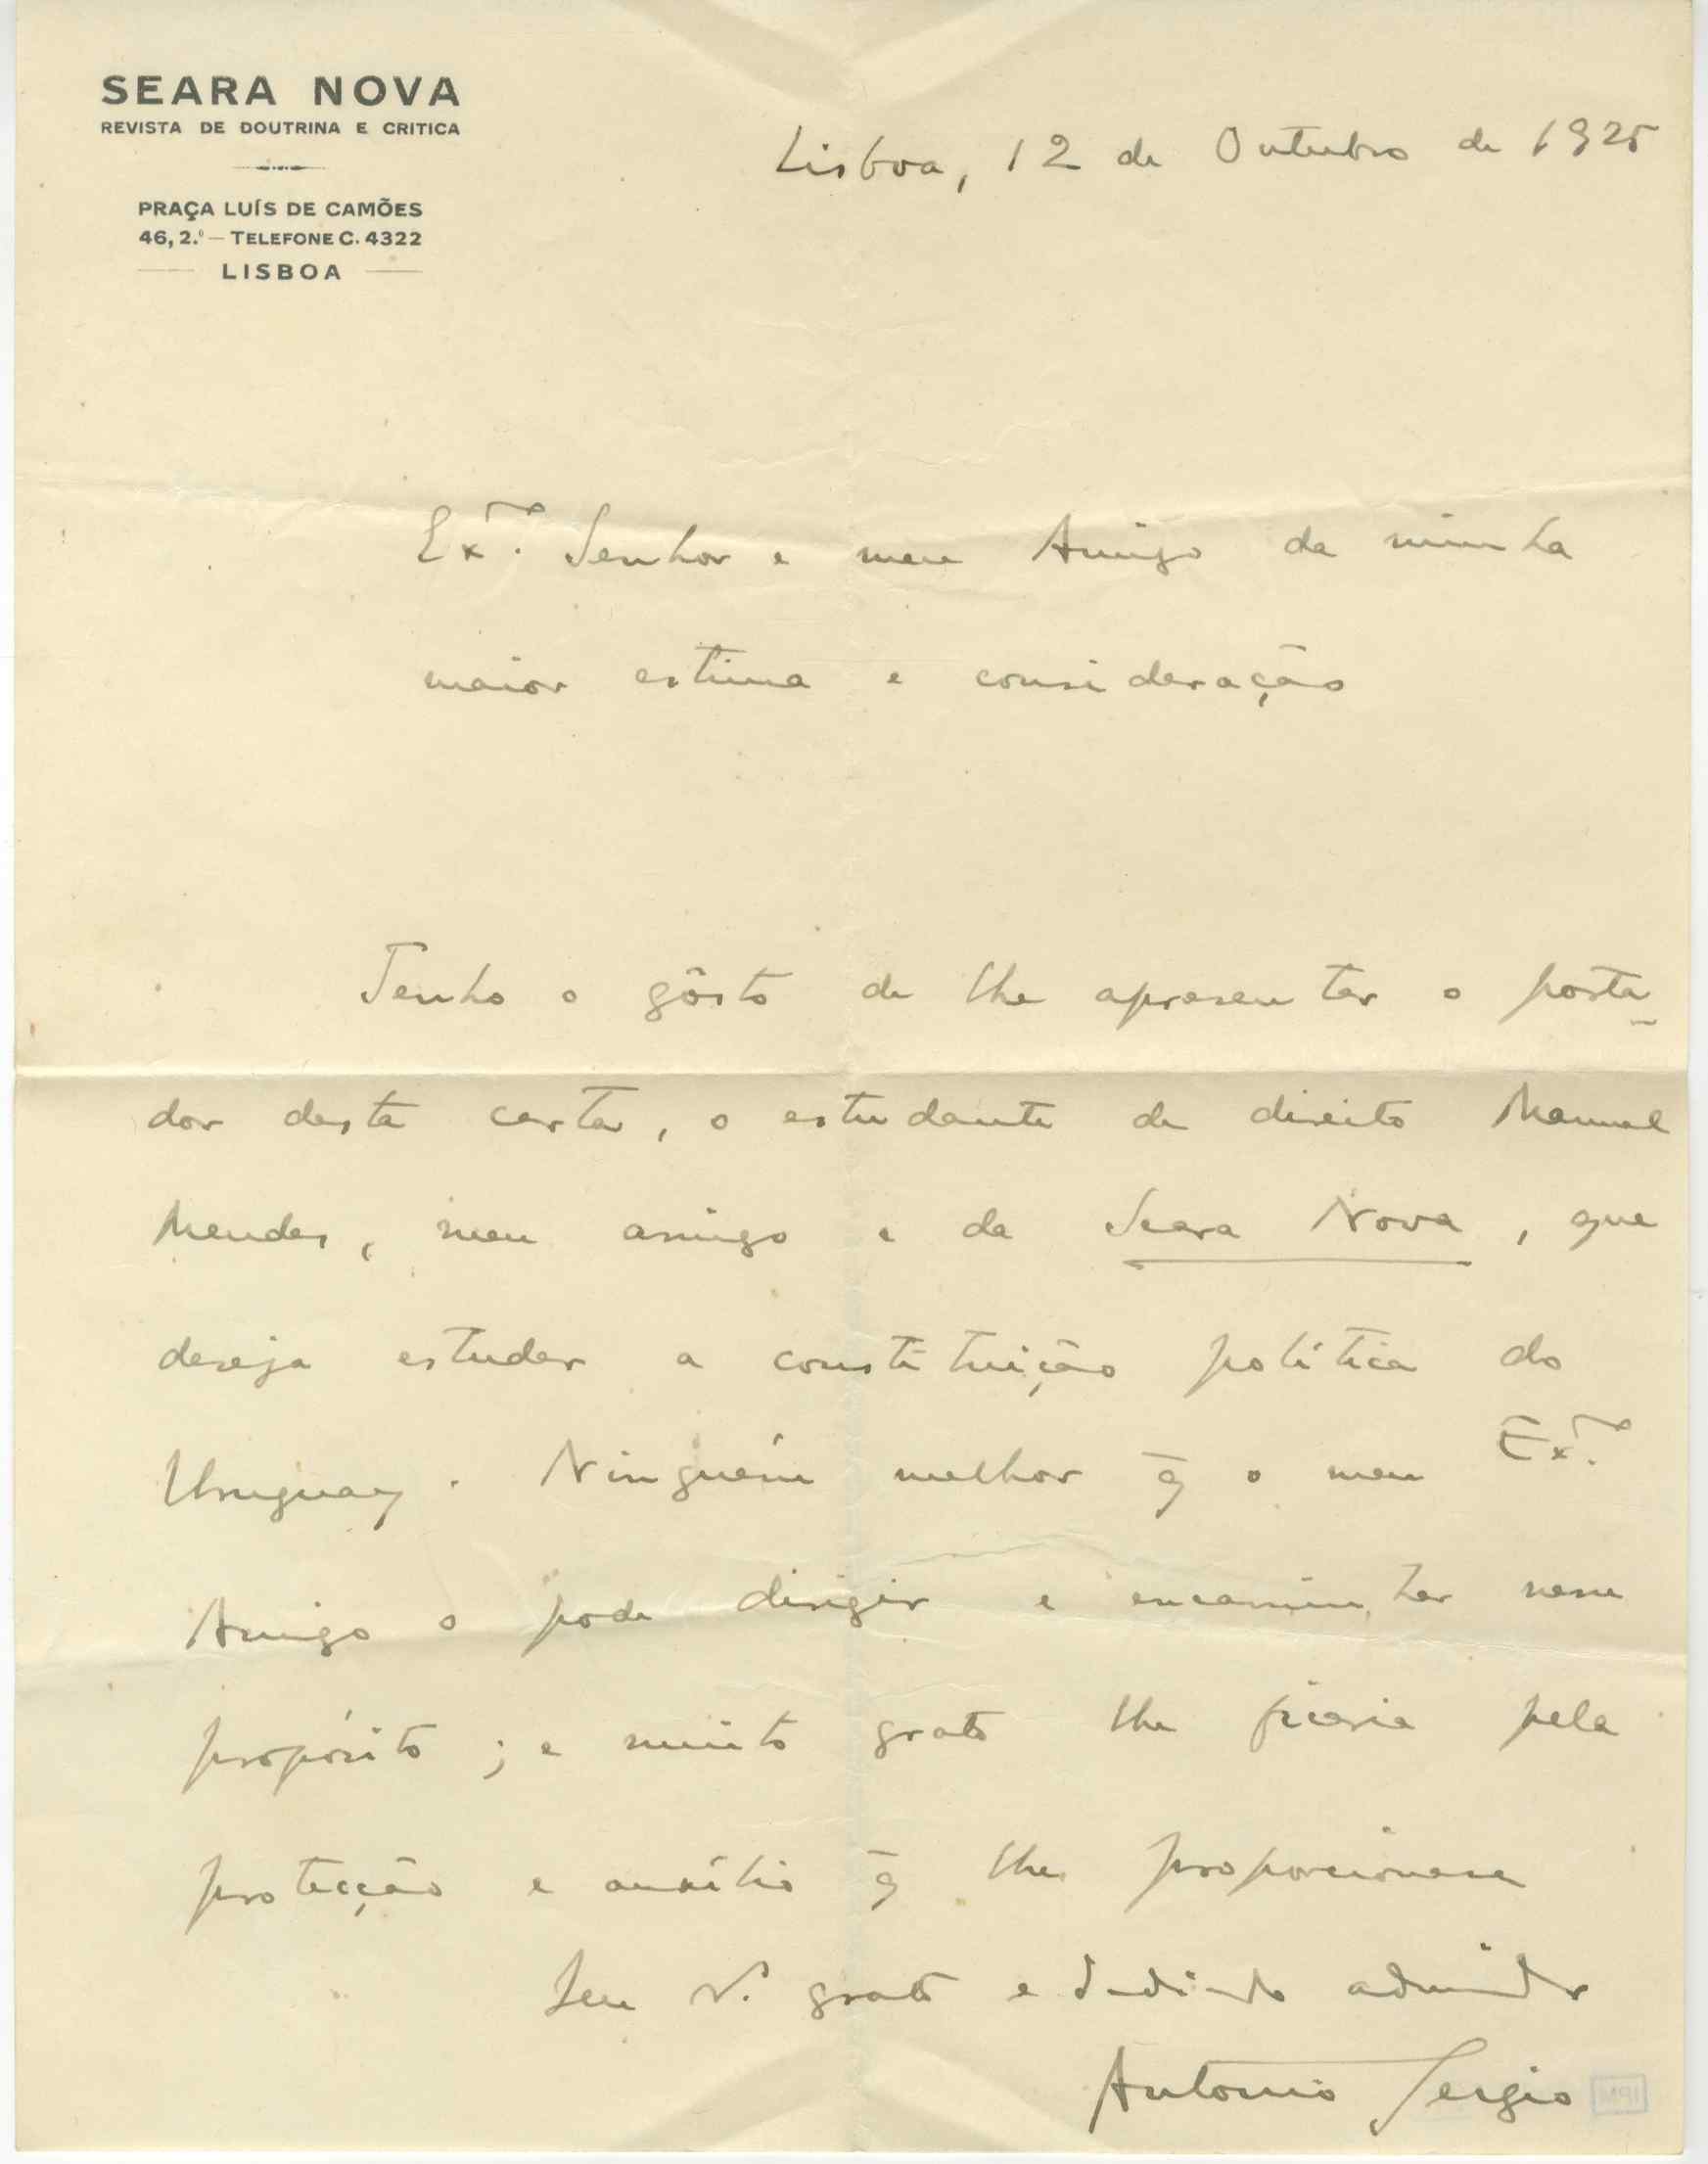 SEARA NOVA
REVISTA DE DOUTRINA E CRITICA
PRAÇA LUÍS DE CAMÕES
46, 2.º — TELEFONE C. 4322
LISBOA
Lisboa, 12 de Outubro de 1925
Ex.mo Senhor e meu Amigo da minha
maior estima e consideração
Tenho o gôsto de lhe apresentar o porta-
dor desta carta, o estudante de direito Manuel
Mendes, meu amigo e da Seara Nova, que
deseja estudar a constituição política do
Uruguay. Ninguém melhor q̃ o meu Ex.mo
Amigo o pode dirigir e encaminhar nesse
propósito; e muito grato lhe ficaria pela
protecção e auxílio q̃ lhe proporcionasse
Seu grato e dedicado admirador
Antonio Sergio